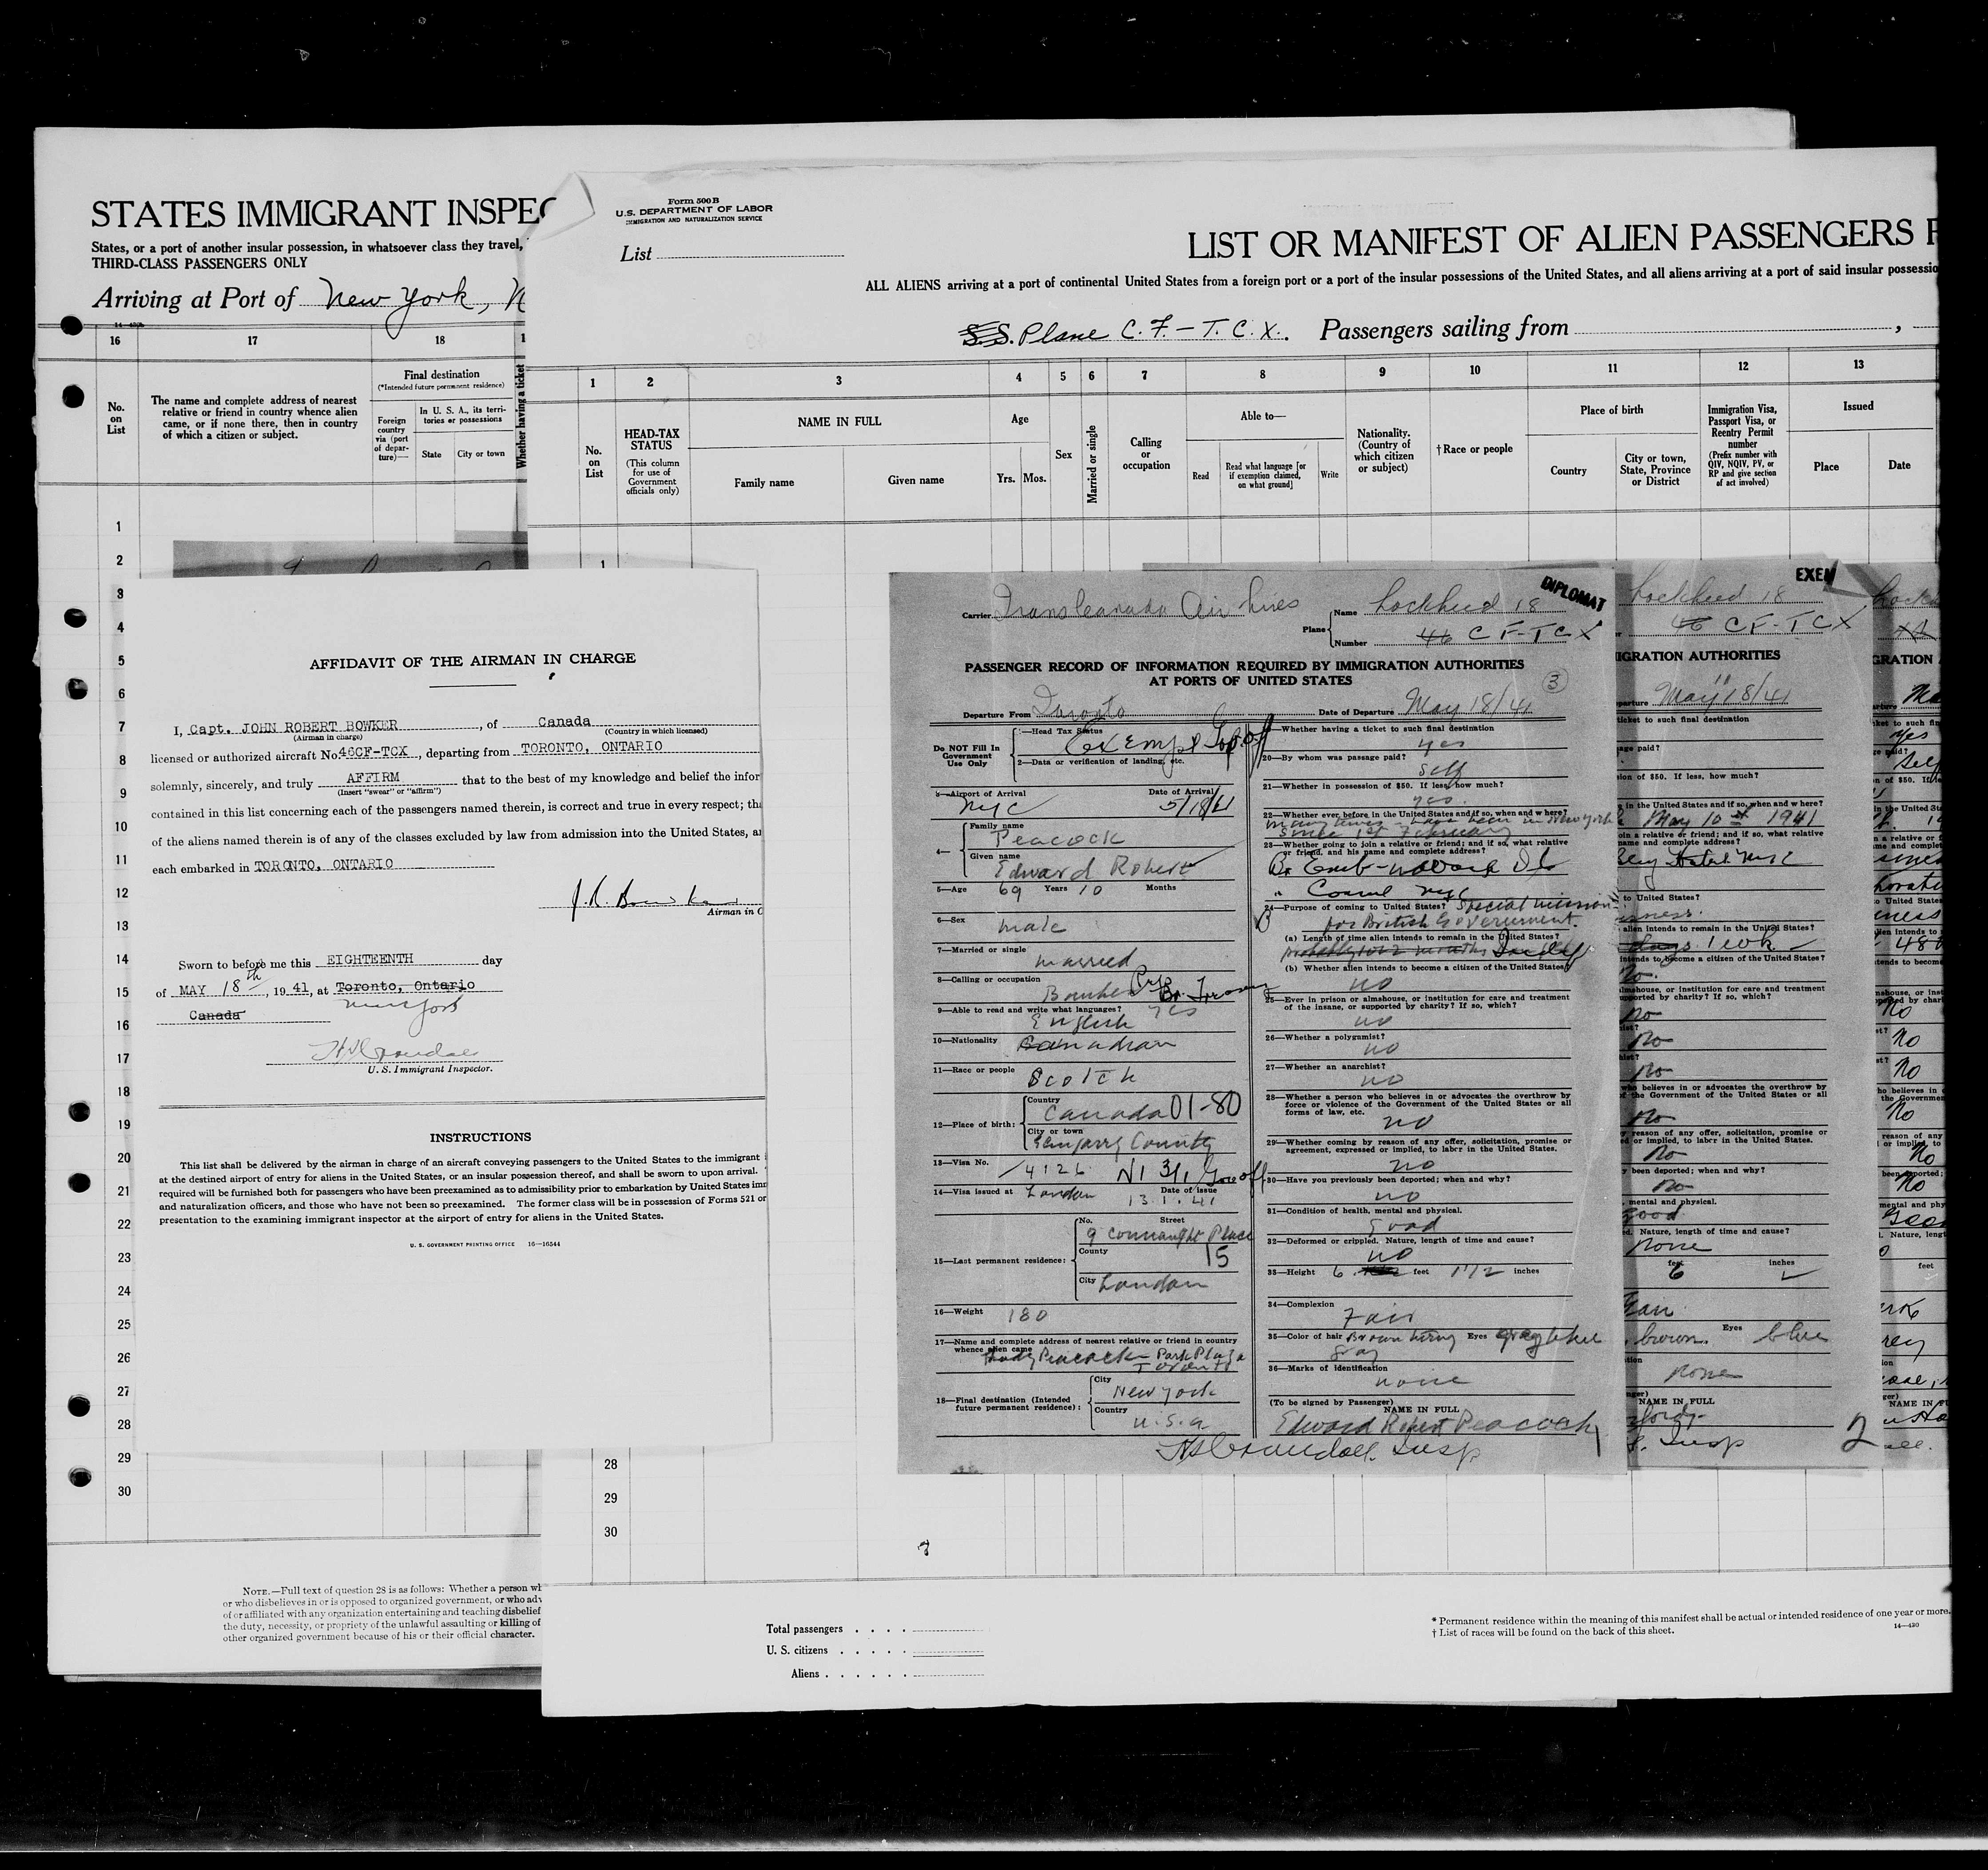 STATES IMMIGRANT INSPEC
States, or a port of another insular possession, in whatsoever class they travel,
THIRD-CLASS PASSENGERS ONLY
Arriving at Port of New York, N
16
17
18
No. on List
The name and complete address of nearest
relative or friend in country whence alien
came, or if none there, then in country
of which a citizen or subject.
Final destination
(*Intended future permanent residence)
Foreign country via (port of departure)—
In U. S. A., its territories or possessions
State
City or town
Whether having a ticket
1
2
3
4
5
6
7
8
9
10
11
12
13
14
15
16
17
18
19
20
21
22
23
24
25
26
27
28
29
30
NOTE.—Full text of question 28 is as follows: Whether a person wh
or who disbelieves in or is opposed to organized government, or who adv
of or affiliated with any organization entertaining and teaching disbelief
the duty, necessity, or propriety of the unlawful assaulting or killing of
other organized government because of his or their official character.
AFFIDAVIT OF THE AIRMAN IN CHARGE
I, Capt. JOHN ROBERT BOWKER, of Canada
(Airman in charge) (Country in which licensed)
licensed or authorized aircraft No. 46CF-TCX, departing from TORONTO, ONTARIO
solemnly, sincerely, and truly AFFIRM that to the best of my knowledge and belief the infor
(Insert "swear" or "affirm")
contained in this list concerning each of the passengers named therein, is correct and true in every respect; tha
of the aliens named therein is of any of the classes excluded by law from admission into the United States, a
each embarked in TORONTO, ONTARIO
J. R. Bowker
Airman in C
Sworn to before me this EIGHTEENTH day
of MAY 18th, 1941, at Toronto, Ontario
Canada New York
U. S. Immigrant Inspector.
INSTRUCTIONS
This list shall be delivered by the airman in charge of an aircraft conveying passengers to the United States to the immigrant
at the destined airport of entry for aliens in the United States, or an insular possession thereof, and shall be sworn to upon arrival.
required will be furnished both for passengers who have been preexamined as to admissibility prior to embarkation by United States imm
and naturalization officers, and those who have not been so preexamined. The former class will be in possession of Forms 521 or
presentation to the examining immigrant inspector at the airport of entry for aliens in the United States.
U. S. GOVERNMENT PRINTING OFFICE 16—16544
Form 500 B
U.S. DEPARTMENT OF LABOR
IMMIGRATION AND NATURALIZATION SERVICE
List
LIST OR MANIFEST OF ALIEN PASSENGERS F
ALL ALIENS arriving at a port of continental United States from a foreign port or a port of the insular possessions of the United States, and all aliens arriving at a port of said insular possessio
S.S. Plane C. F. - T. C. X. Passengers sailing from
1 2 3 4 5 6 7 8 9 10 11 12 13
No. on List
HEAD-TAX STATUS
(This column for use of Government officials only)
NAME IN FULL
Family name
Given name
Age
Yrs. Mos.
Sex
Married or single
Calling or occupation
Able to—
Read
Read what language [or if exemption claimed, on what ground]
Write
Nationality. (Country of which citizen or subject)
†Race or people
Place of birth
Country
City or town, State, Province or District
Immigration Visa, Passport Visa, or Reentry Permit number
(Prefix number with QIV, NQIV, PV, or RP and give section of act involved)
Issued
Place
Date
1
28
29
30
Total passengers
U. S. citizens
Aliens
* Permanent residence within the meaning of this manifest shall be actual or intended residence of one year or more.
† List of races will be found on the back of this sheet.
14—430
DIPLOMAT
Carrier TransCanada Air Lines
Plane Name Lockheed 18
Number 46 CF-TCX
PASSENGER RECORD OF INFORMATION REQUIRED BY IMMIGRATION AUTHORITIES
AT PORTS OF UNITED STATES
3
Departure From Toronto Date of Departure May 18/41
Do NOT Fill In Government Use Only
1—Head Tax Status Exempt Gov. off
2—Data or verification of landing, etc.
3—Airport of Arrival NYC Date of Arrival 5/18/41
4— Family name Peacock
Given name Edward Robert
5—Age 69 Years 10 Months
6—Sex male
7—Married or single married
8—Calling or occupation Banker
9—Able to read and write what languages? Yes
English
10—Nationality Canadian
11—Race or people Scotch
12—Place of birth: Country Canada 01-80
City or town Glengarry County
13—Visa No. 4126 N1 31, Gov off
14—Visa issued at London Date of issue 13.1.41
15—Last permanent residence: No. Street 9 Connaught Place
County 15
City London
16—Weight 180
17—Name and complete address of nearest relative or friend in country
whence alien came Lady Peacock - Park Plaza
Toronto
18—Final destination (Intended future permanent residence): City New York
Country U.S.A.
—Whether having a ticket to such final destination yes
20—By whom was passage paid? Self
21—Whether in possession of $50. If less, how much? yes.
22—Whether ever before in the United States and if so, when and where?
many times - have been in New York
since 1st February
23—Whether going to join a relative or friend; and if so, what relative
or friend, and his name and complete address?
Br Emb-
" Consul NYC
24—Purpose of coming to United States? Special mission
for British Government.
(a) Length of time alien intends to remain in the United States?
probably 1 or 2 months
(b) Whether alien intends to become a citizen of the United States? no
25—Ever in prison or almshouse, or institution for care and treatment
of the insane, or supported by charity? If so, which? no
26—Whether a polygamist? no
27—Whether an anarchist? no
28—Whether a person who believes in or advocates the overthrow by
force or violence of the Government of the United States or all
forms of law, etc. no
29—Whether coming by reason of any offer, solicitation, promise or
agreement, expressed or implied, to labor in the United States. no
30—Have you previously been deported; when and why? no
31—Condition of health, mental and physical. Good
32—Deformed or crippled. Nature, length of time and cause? no
33—Height 6 feet 1 1/2 inches
34—Complexion Fair
35—Color of hair Brown turning gray Eyes
36—Marks of identification none
(To be signed by Passenger)
NAME IN FULL
Edward Robert Peacock
Insp
EXEM
Lockheed 18
46 CF-TCX
IGRATION AUTHORITIES
May 18/41
ticket to such final destination
age paid?
ion of $50. If less, how much?
in the United States and if so, when and where?
May 10 1941
oin a relative or friend; and if so, what relative
name and complete address?
Hotel NYC
to United States?
alien intends to remain in the United States?
1 week
intends to become a citizen of the United States?
no.
almshouse, or institution for care and treatment
upported by charity? If so, which?
no
no
no
who believes in or advocates the overthrow by
the Government of the United States or all
no
reason of any offer, solicitation, promise or
ed or implied, to labor in the United States.
no
been deported; when and why?
no
mental and physical.
good
ed. Nature, length of time and cause?
none
feet 6 inches
brown. Eyes blue
none
NAME IN FULL
Insp
2